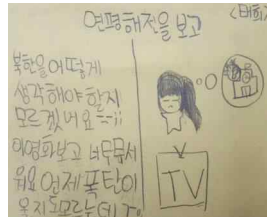 연평해전을 보고
북한을 어떻게
생각해야 할지
모르겠어요
이영화보고 너무무서
워요 언제 폭탄이
올지도모르는데
TV